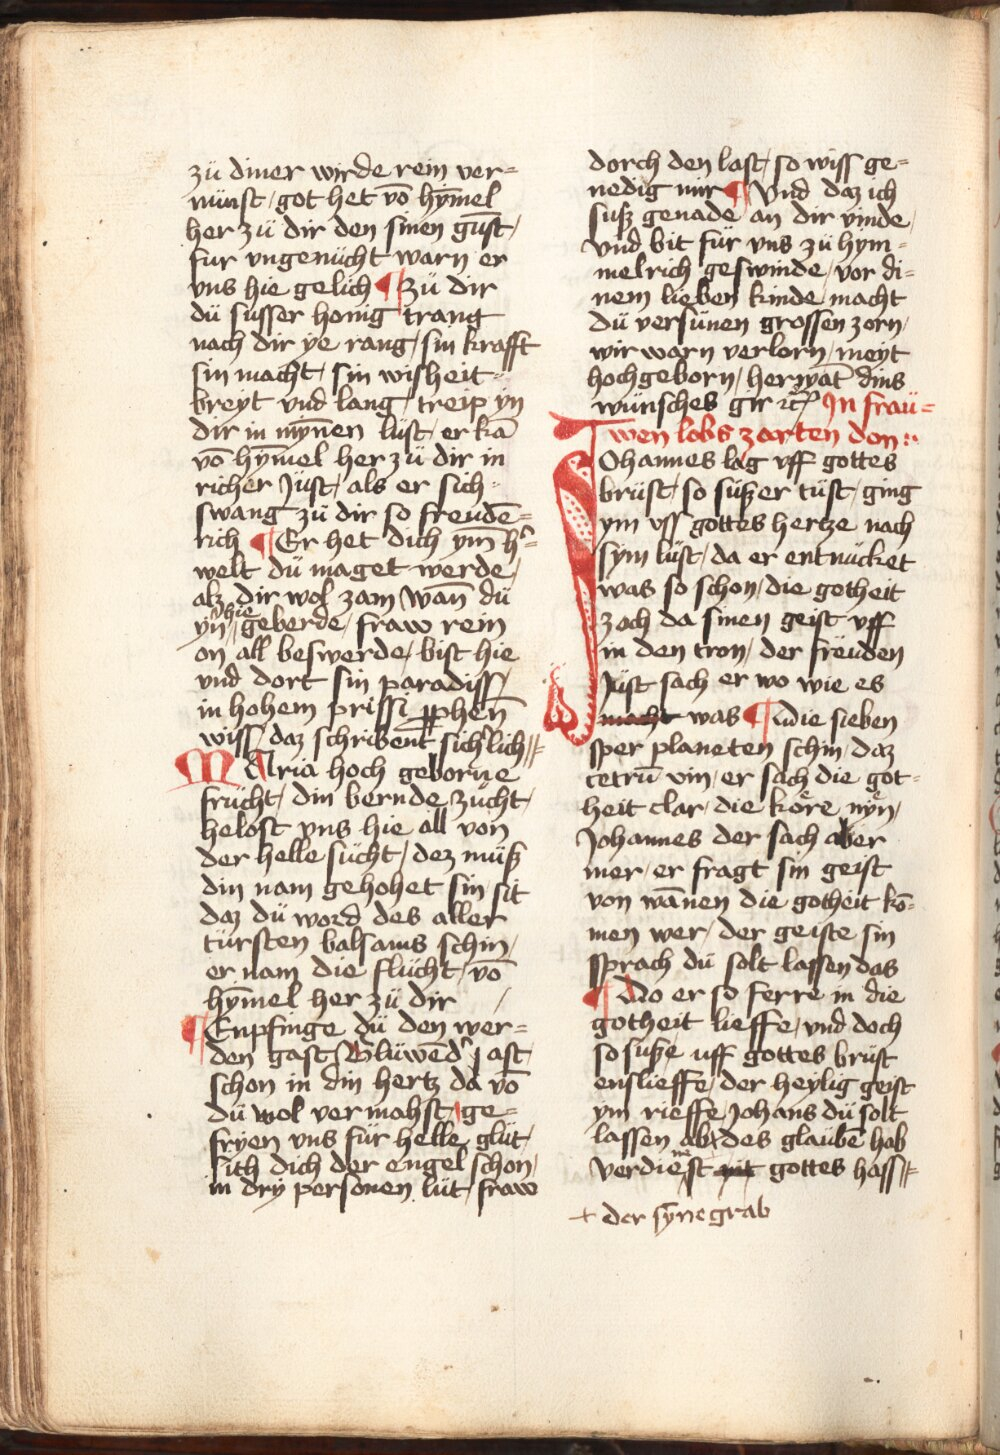 zü diner wirde rein ver=
nünst / got het vō hȳmel
her zü dir den sinen gūst /
fur vngenücht warn er
vns hie gelich ¶ zü dir
dü süsser honig trang
nach dir ye rang / sin krafft
sin macht / sin wisheit=
breyt vnd lang / treip yn
dir in mȳnen lust / er kā
vō hȳmel her zü dir in
richer Just / als er sich=
swang zü dir so freudē=
rich ¶ Er het dich ym h᷒=
welt dü maget werde /
alz dir wol zam wan̄ dü
yn̄ hie geberde / fraw rein
on all beswerde / bist hie
vnd dort sin paradiss /
in hohem prissz ꝓphen̄
wiss / daz schribent sich᷒lich //=
MAria hoch geborne
frücht / din bernde zücht /
helost vns hie all von
der helle sücht / dez müß
din nam gehohet sin sit
daz dü word des aller
türsten balsams schin /
er nam die flücht / vō
hȳmel her zü dir /
¶ Enpfinge dü den wer=
den gast Blüwēd᷒ jast /
schon in din hertz da vō
dü wol vermahst / ge=
fryen vns für helle glüt /
sith dich der engel schon /
in dry personen lüt / fraw
dorch den last / so wiss ge=
nedig mir ¶ Vnd daz ich
süß genade an dir vinde /
vnd bit für vns zü hym=
melrich geswinde / vor di=
nem lieben kinde macht
dü versünen grossen zorn /
wir warn verlorn / meyt
hochgeborn / her wāt dins
wünsches gir ꝛc̄ In fraü=
wen lobs zarten don :
IOhannes lag vff gottes
brüst / so süß er tüst / ging
ym vss gottes hertze nach
sym lüst / da er entnücket
was so schon / die gotheit
zoch da sinen geist vff
in den tron / der freüden
Jüst sach er wo wie es
macht was ¶ Wie sieben
sper planeten schin / daz
cetrū vin / er sach die got=
heit clar / die köre nyn /
Johannes der sach aber
mer / er fragt sin geist
von wānen die gotheit kō=
men wer / der geiste sin
sprach dü solt lassen das
¶ Do er so ferre in die
gotheit lieffe / vnd doch
so süße uff gottes brüst
enslieffe / der heylig geist
ym rieffe Johans dü solt
lassen ab + des glaübē hab
verdienest nit gottes hass //=
+ der synne grab